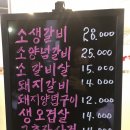 소생갈비 28.000
소양념갈비 25.000
소 갈비살 15.000
돼지갈비 14.000
돼지양념구이 12.000
생오겹살 14.000